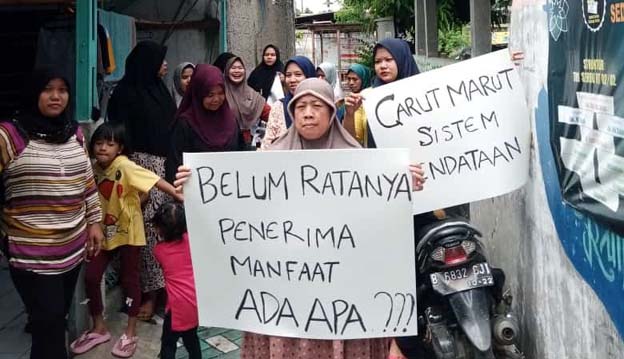 BELUM RATANYA
PENERIMA
MANFAAT
ADA APA ???
CARUT MARUT
SISTEM
NDATAAN
B 6832 DJI
10·22
STRUKTUR